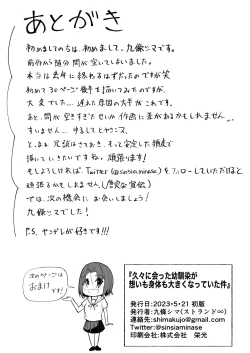 あとがき
初めましての方は、初めまして、九條シマです。
前作から随分間が空いてしまいました。
本当は去年に終わるはずだったのですが笑
初めて30ページ後半を描いてみたのですが、
大変でした…。遅れた原因の大半がこれです。
あと、間が空きすぎたせいか作画に差があるかもしれません…
すいません…。ゆるしてヒヤシンス。
とまぁ冗談はさておき、もっと安定した頻度で
描いていきたいですね。頑張ります!
もしよろしければ、Twitter(@sinsiaminase)をフォローしていただけると
頑張るかもしれません。(唐突な宣伝)
では、次の機会にお会いしましょう!
九條シマでした!
P.S. ヤンデレが好きです!!!
次のページは
おまけ
です!
『久々に会った幼馴染が
想いも身体も大きくなっていた件』
発行日:2023・5・21 初版
発行者:九條シマ(ストランド∞)
連絡先:shimakujo@gmail.com
Twitter:@sinsiaminase
印刷会社:株式会社 栄光